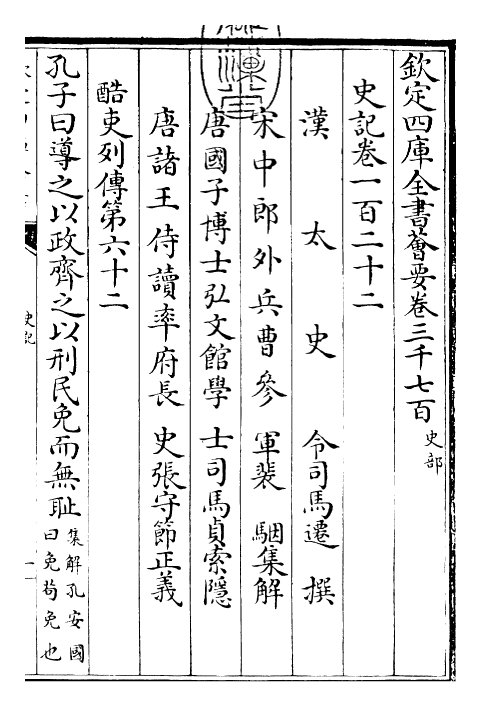 欽定四庫全書薈要卷三千七百 史部
史記卷一百二十二
漢太史令司馬遷撰
宋中郎外兵曹參軍裴駰集解
唐國子博士弘文館學士司馬貞索隱
唐諸王侍讀率府長史張守節正義
酷吏列傳第六十二
孔子曰導之以政齊之以刑民免而無恥 集解孔安國
曰免苟免也
史記